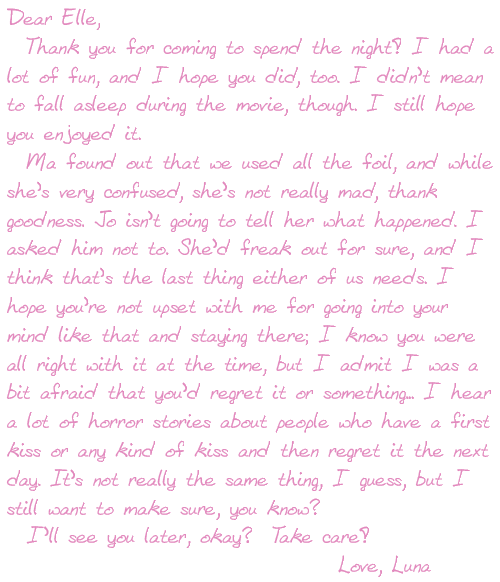 Dear Elle,
Thank you for coming to spend the night! I had a
lot of fun, and I hope you did, too. I didn't mean
to fall asleep during the movie, though. I still hope
you enjoyed it.
Ma found out that we used all the foil, and while
she's very confused, she's not really mad, thank
goodness. Jo isn't going to tell her what happened. I
asked him not to. She'd freak out for sure, and I
think that's the last thing either of us needs. I
hope you're not upset with me for going into your
mind like that and staying there; I know you were
all right with it at the time, but I admit I was a
bit afraid that you'd regret it or something... I hear
a lot of horror stories about people who have a first
kiss or any kind of kiss and then regret it the next
day. It's not really the same thing, I guess, but I
still want to make sure, you know?
I'll see you later, okay? Take care!
Love, Luna